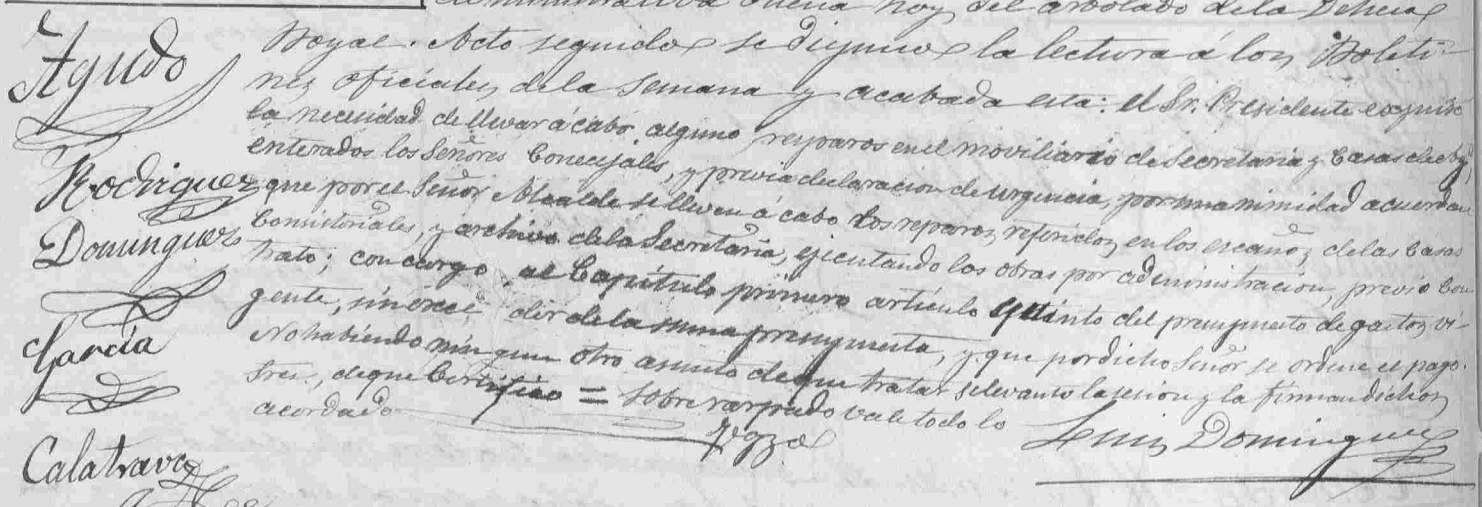 administrativa buena hoy del arbolado de la Dehesa
Boyal. Acto seguido se dispuso la lectura á los Boleti-
nes oficiales de la semana y acabada esta: el Sr. Presidente expuso
la necesidad de llevar á cabo alguno reparos en el moviliario de Secretaria y Casas
enterados los Señores Concejales, y previa declaracion de urgencia, por unanimidad acuerdan
que por el Señor Alcalde se lleven á cabo los reparos referidos en los escaños de las Casas
Consistoriales, y archivo de la Secretaria, ejecutando las obras por administracion, previo con
trato; con cargo al Capitulo primero articulo quinto del presupuesto de gastos vi-
gente, sin exce dir de la suma presupuesta, y que por dicho Señor se ordene el pago.
No habiendo ningun otro asunto de que tratar se levanto la sesion y la firman dichos
Sres., de que Certifico = Sobre raspado vale todo lo
acordado
Agudo
Rodriguez
Dominguez
Garcia
Calatrava
Luis Dominguez